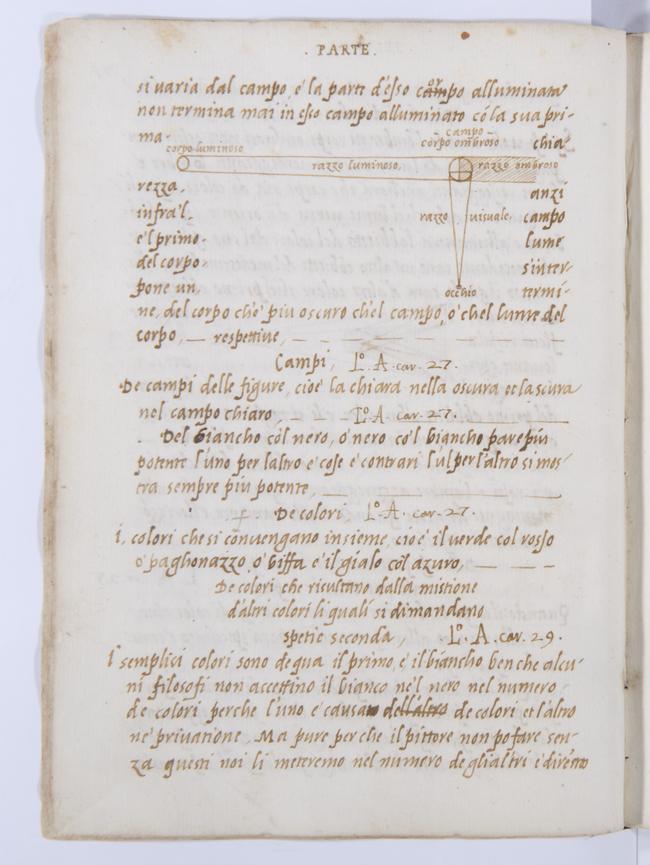 . PARTE .
si varia dal campo, e la parte d'esso corpo alluminata
non termina mai in esso campo alluminato cō la sua pri-
ma chia
corpo luminoso
razzo luminoso
campo
corpo ombroso
razzo ombroso
razzo visuale
occhio
rezza anzi
infra'l campo
e'l primo lume
del corpo s'inter-
pone un termi-
ne, del corpo ch'è piu oscuro che'l campo, o che'l lume del
corpo, — respettive,
Campi, Lº. A. car. 27.
De campi delle figure, cioè la chiara nella oscura et la scura
nel campo chiaro, Lº. A. car. 27.
Del biancho col nero, o nero co'l biancho pare piú
potente l'uno per l'altro e cose e contrari l'ul per l'altro si mos-
tra sempre piu potente,
De colori Lº. A. car. 27.
i, colori che si convengano insieme, cioe il verde col rosso
o paghonazzo o biffa e il gialo col azuro,
De colori che risultano dalla mistione
d'altri colori li quali si dimandano
spetie seconda, Lº. A. car. 29.
I semplici colori sono de qua il primo, è il biancho ben che alcu-
ni filosofi non accettino il bianco ne'l nero nel numero
de colori perche l'uno e causa dell'altro de colori et l'altro
ne' privatione. Ma pure perche il pittore non po fare sen-
za questi noi li meteremo nel numero de gli altri e diremo